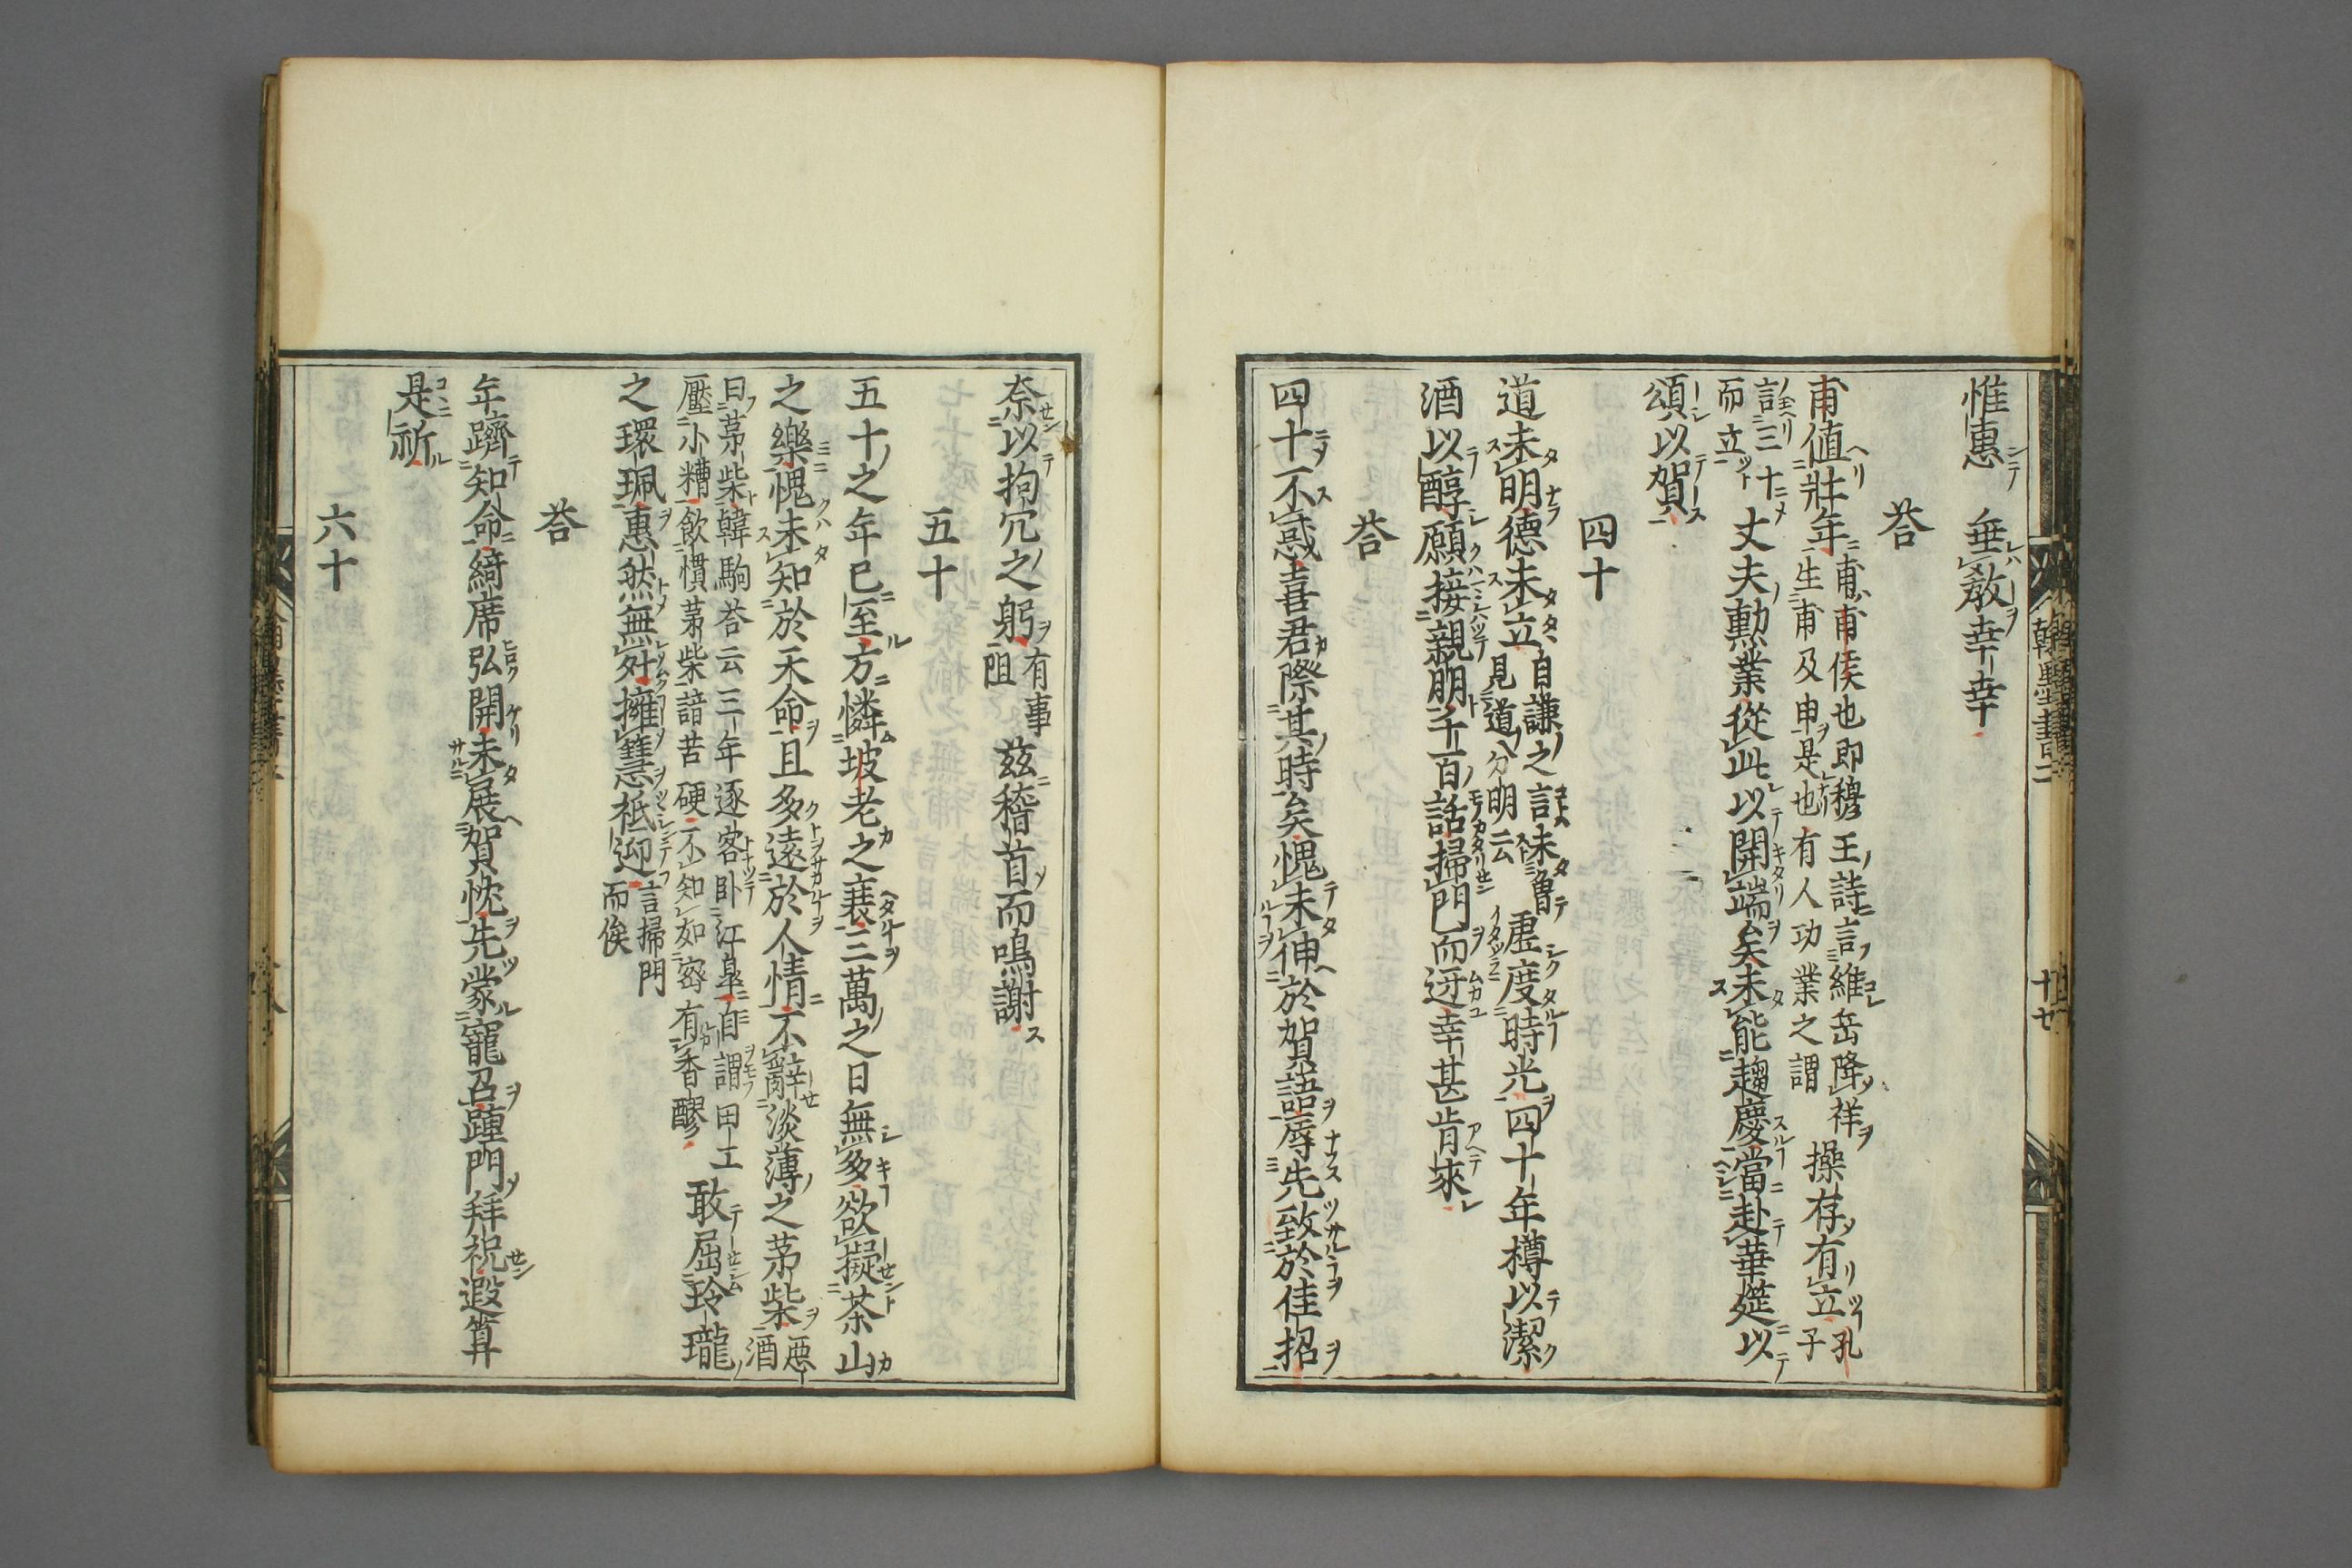 惟惠 垂教幸幸
荅
甫値壯年甫甫侯也即穆王詩言維岳降祥
生甫及申是也有人功業之謂
操存有立孔子
言三十
而立
丈夫勳業從此以開端矣未能趨慶當赴華筵以
頌以賀
四十
道未明德未立自謙之言未魯
見道分明云
虛度時光四十年樽以潔
酒以醇願接親朋千百話掃門而迓幸甚肯來
荅
四十不惑喜君際其時矣愧未伸於賀語辱先致於佳招
奈以拘冗之躬有事
阻
玆稽首而鳴謝
五十
五十之年已至方憐坡老之衰三萬之日無多欲擬茶山
之樂愧未知於天命且多遠於人情不辭淡薄之茅柴惡
酒
曰茅柴韓駒荅云三年逐客卧江皐自謂田工
壓小糟飲慣茅柴諳苦硬不知如宻有香醪
敢屈玲瓏
之環珮惠然無外擁篲祗迎言掃門
而俟
荅
年躋知命綺席弘開未展賀忱先蒙寵召踵門拜祝遐算
是祈
六十